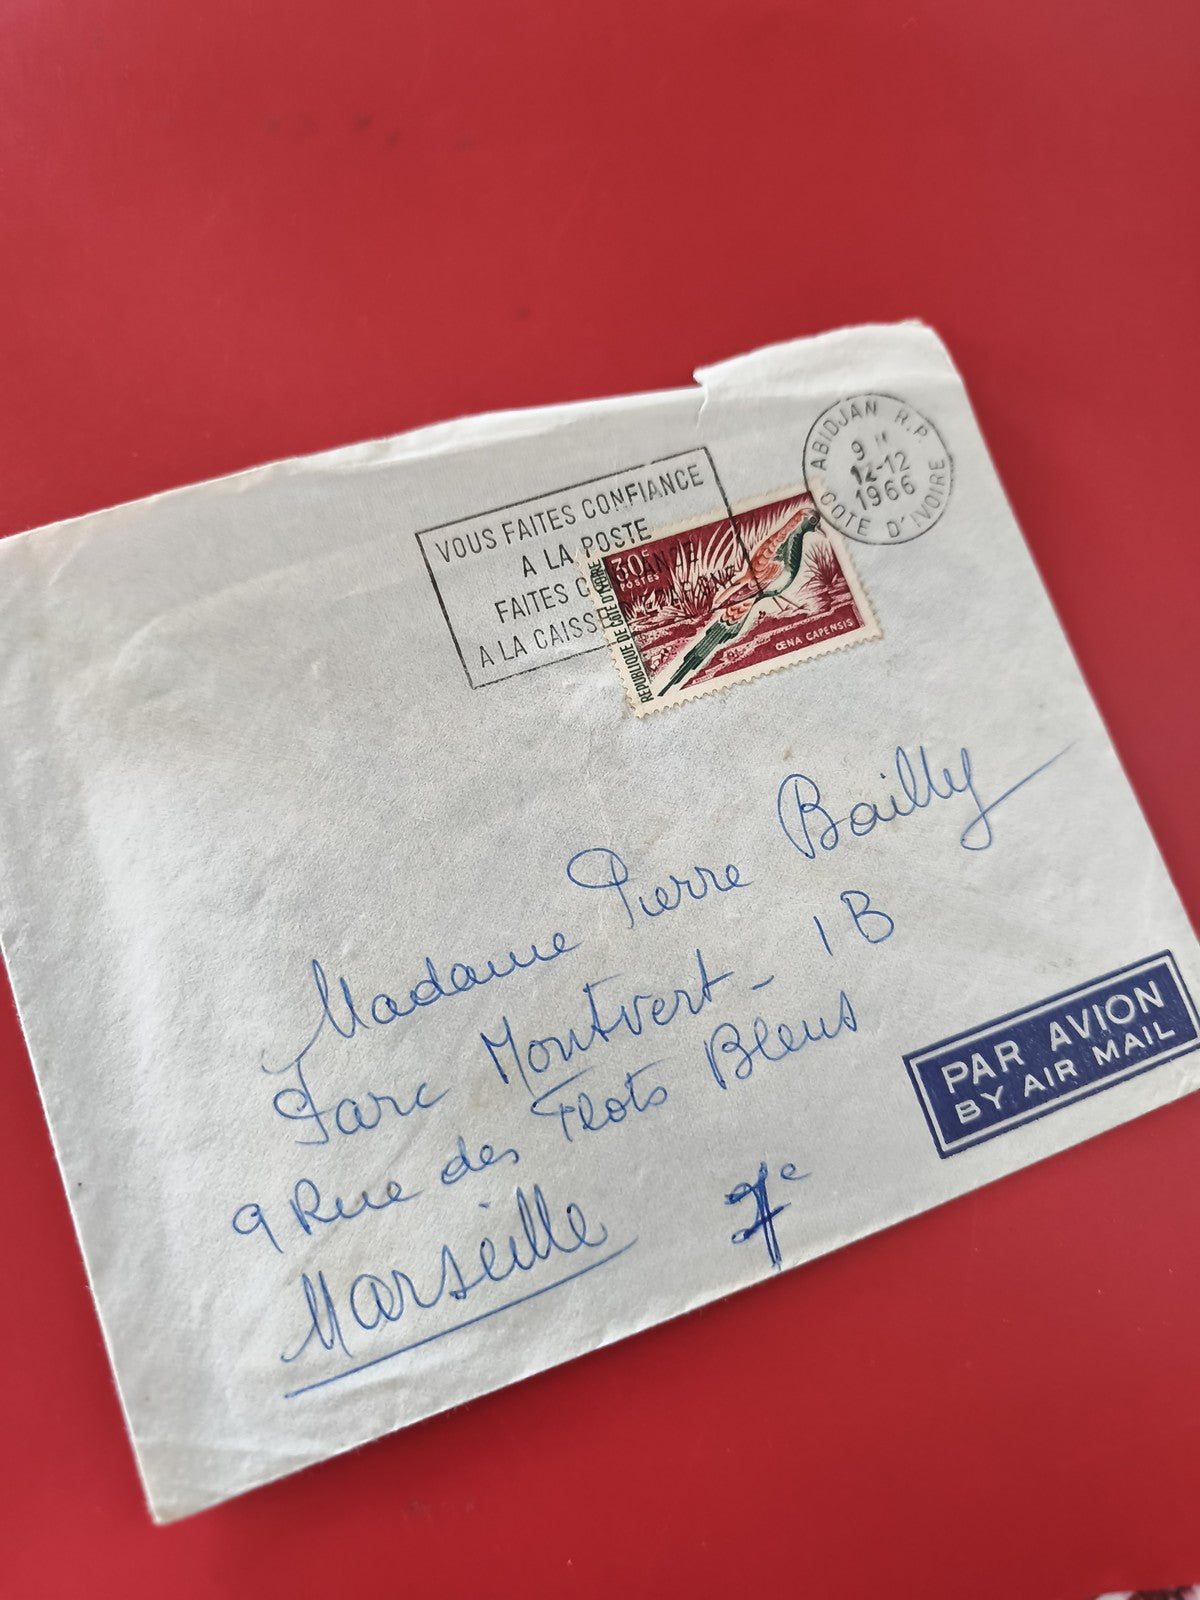 ABIDJAN R.P.
9 H
12-12
1966
COTE D'IVOIRE
VOUS FAITES CONFIANCE
A LA POSTE
FAITES CONFIANCE
A LA CAISSE D'EPARGNE
30F
POSTES
REPUBLIQUE DE COTE D'IVOIRE
ŒNA CAPENSIS
Madame Pierre Bailly
Parc Montvert - 1 B
9 Rue des Flots Bleus
Marseille 7e
PAR AVION
BY AIR MAIL